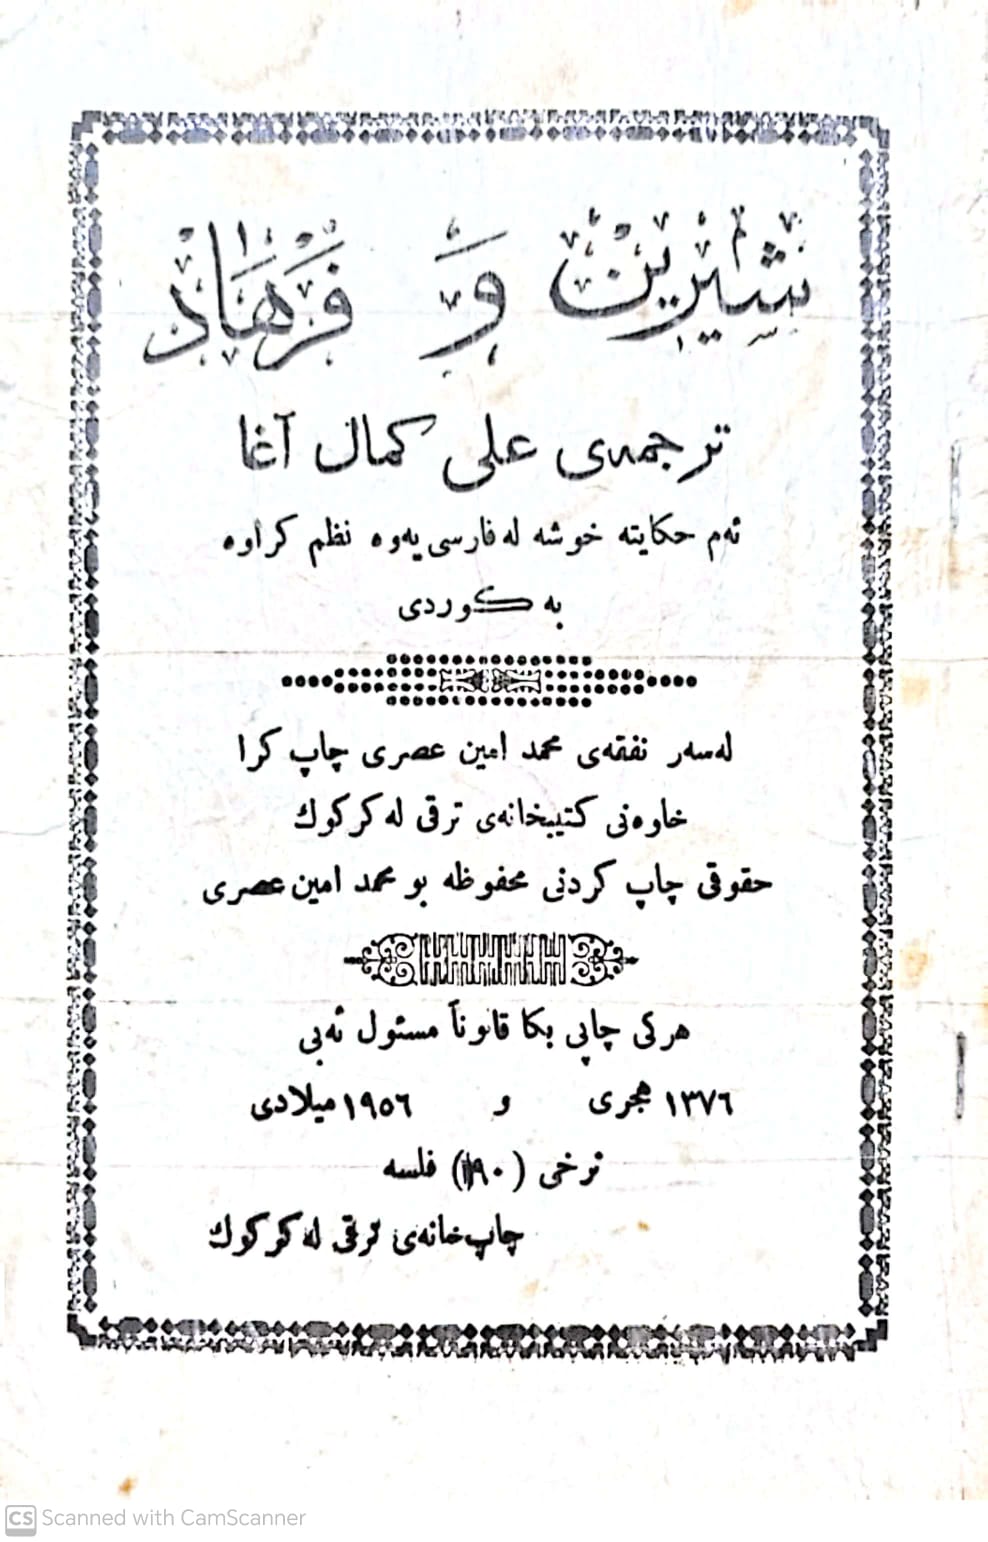 شیرین و فرهاد
ترجمه‌ی علی کمال آغا
ئه‌م حکایته خوشه له فارسی یه‌وه نظم کراوه
به کوردی
له‌سه‌ر نفقه‌ی محمد امین عصری چاپ کرا
خاوه‌نی کتیبخانه‌ی ترقی له کرکوك
حقوقی چاپ کردنی محفوظه بو محمد امین عصری
هرکی چاپی بکا قانوناً مسئول ئه‌بی
١٣٧٦ هجری و ١٩٥٦ میلادی
نرخی ( ٩٠) فلسه
چاپ خانه‌ی ترقی له کرکوك
CS Scanned with CamScanner